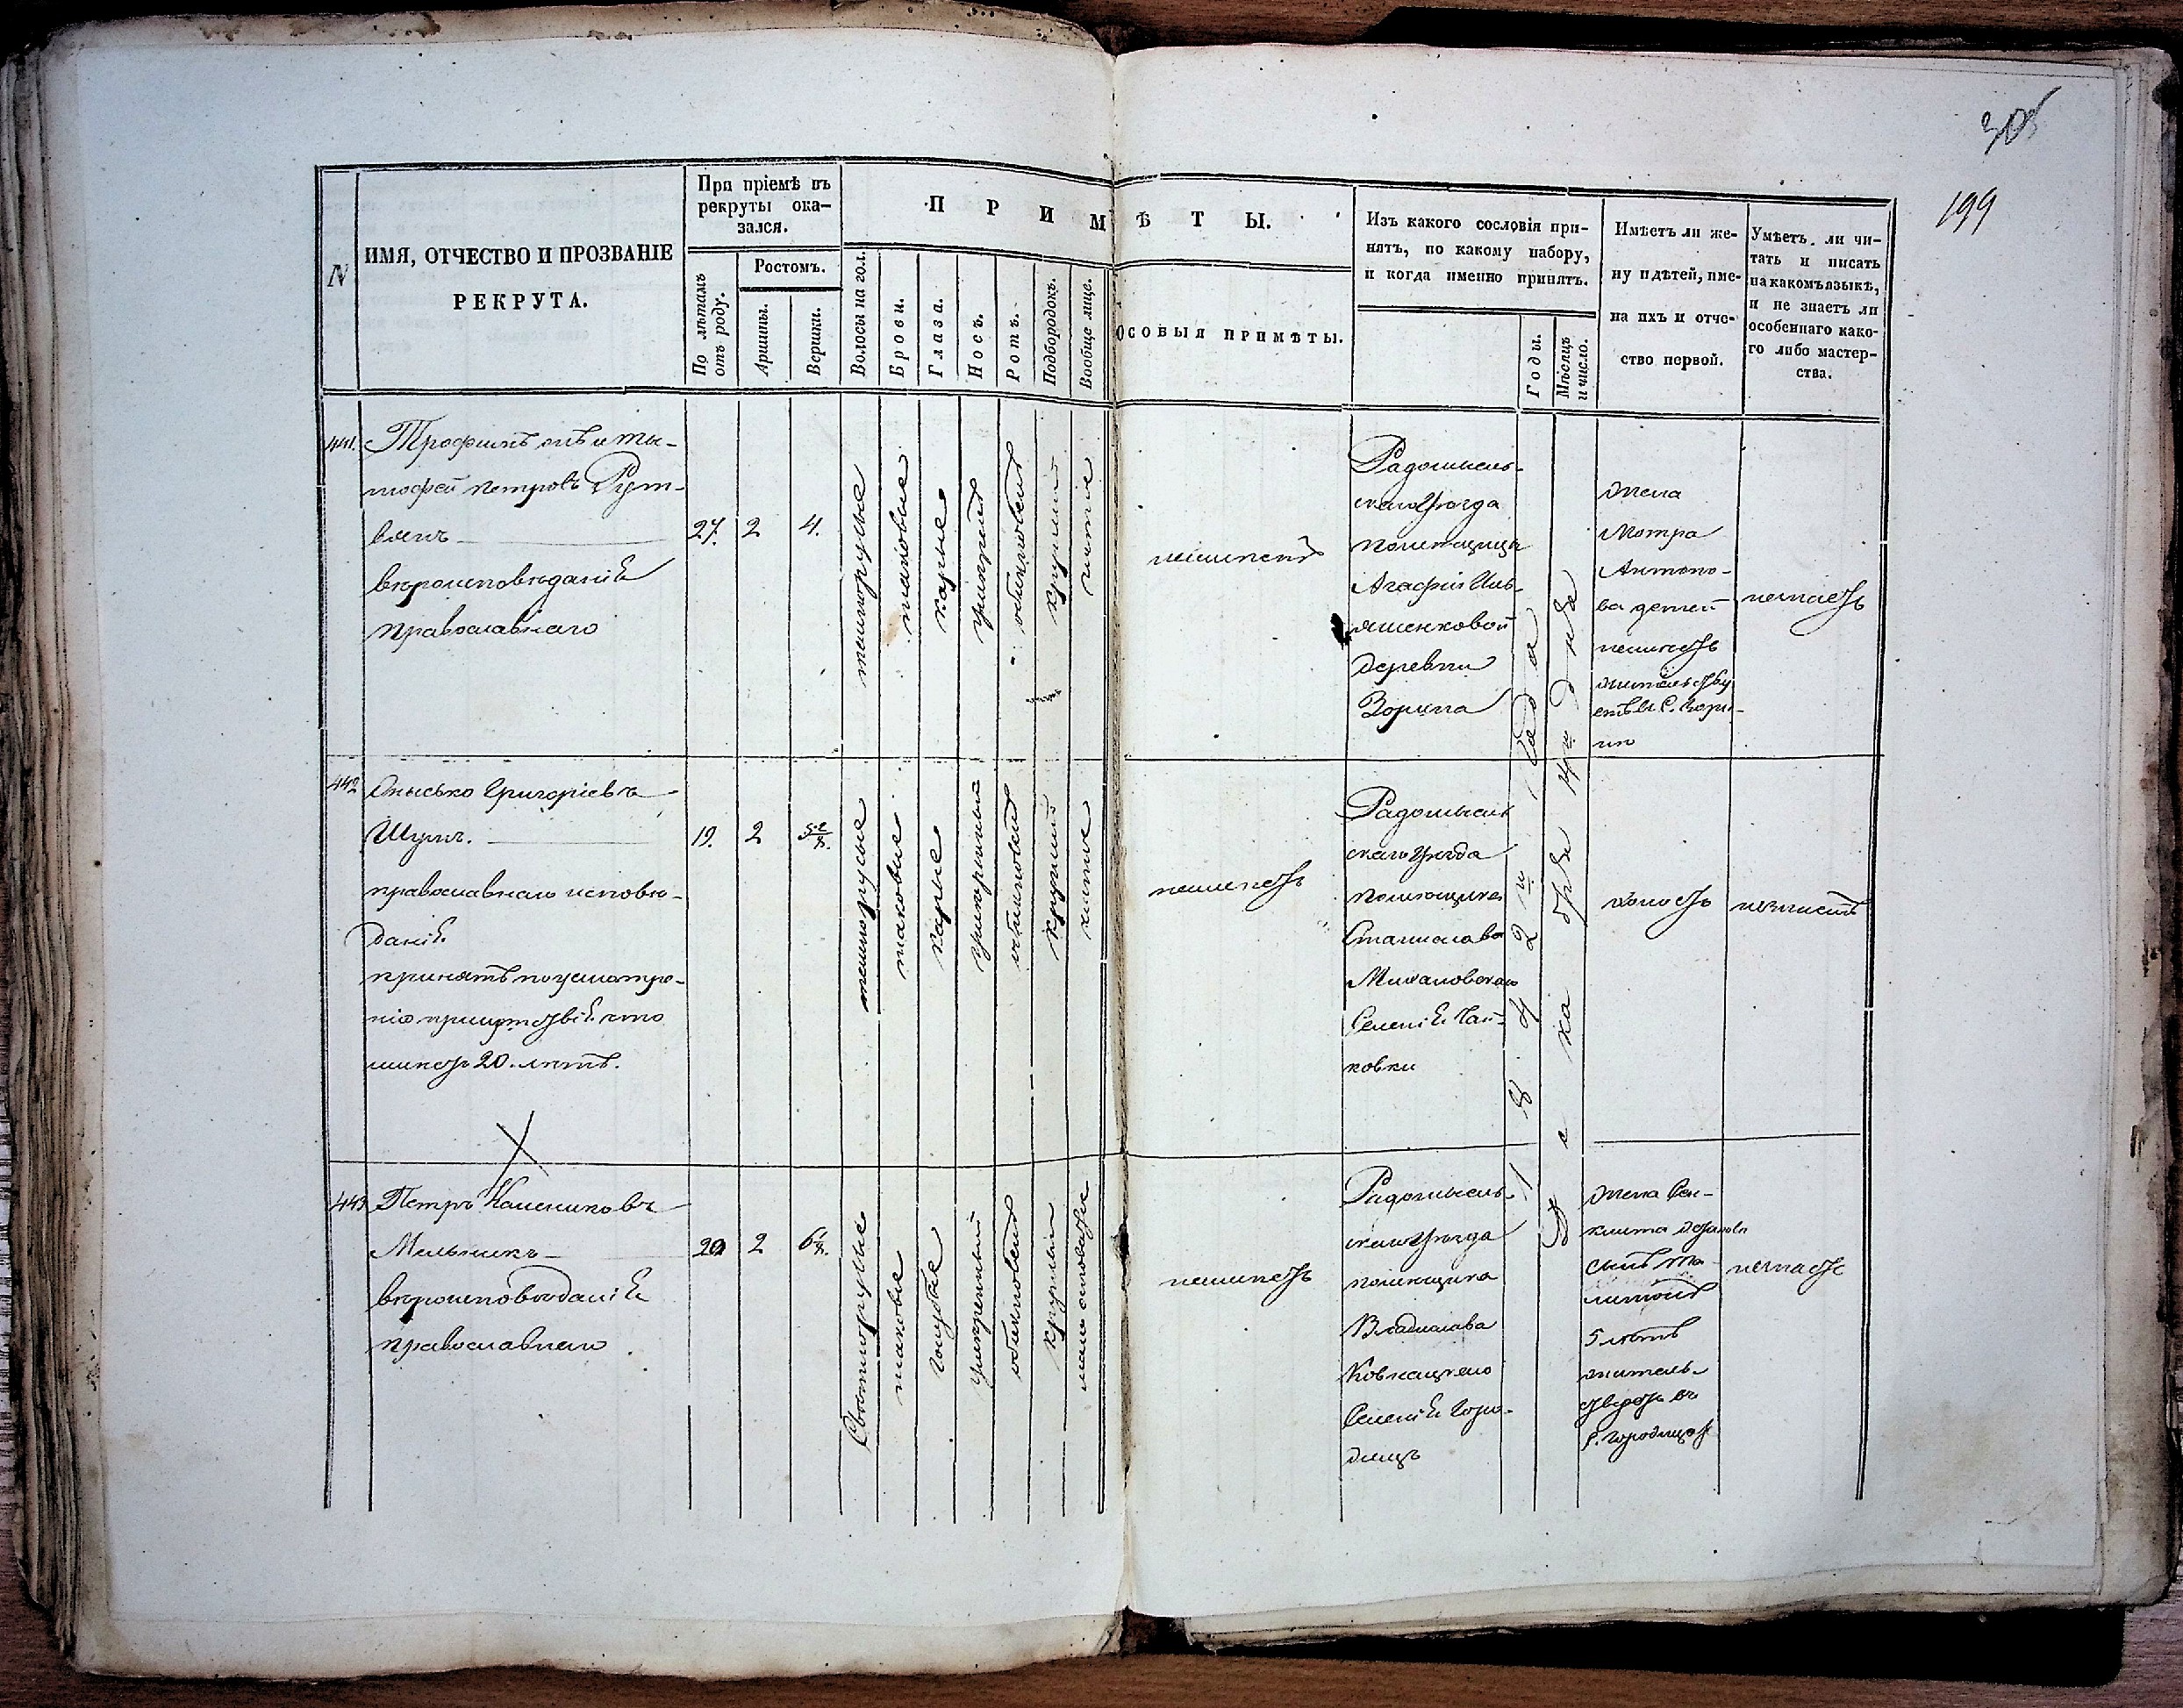 305
199
N
ИМЯ, ОТЧЕСТВО И ПРОЗВАНІЕ
РЕКРУТА.
При пріемѣ въ
рекруты ока-
зался.
По лѣтамъ
отъ роду.
Ростомъ.
Аршины.
Вершки.
ПРИМѢТЫ.
Волосы на гол.
Брови.
Глаза.
Носъ.
Ротъ.
Подбородокъ.
Вообще лице.
ОСОБЫЯ ПРИМѢТЫ.
Изъ какого сословія при-
нятъ, по какому набору,
и когда именно принятъ.
Годы.
Мѣсяцъ
и число.
Имѣетъ ли же-
ну и дѣтей, име-
на ихъ и отче-
ство первой.
Умѣетъ ли чи-
тать и писать
на какомъ языкѣ,
и не знаетъ ли
особеннаго како-
го либо мастер-
ства.
441.
Трофимъ онъ и Ты-
мофей Петровъ
вероисповѣданія
православнаго
27.
2
4.
темнорусые
таковые
карые
умѣренъ
обыкновенъ
круглый
чистое
неимѣетъ
Радомысль-
скаго уѣзда
помѣщицы
Агафіи Иль-
яшенковой
деревни
Ворина
жена
Мотра
Антоно-
ва детей
неимѣетъ
жительству
етъ въ с. Вори-
но
незнаетъ
442
Онысько Григоріевъ
Шумъ.
православнаго исповѣ-
данія
принятъ по усмотре-
нію присутствія что
имѣетъ 20. лѣтъ.
19.
2
5 2/8.
темнорусые
таковые
карые
умѣренный
обыкновенъ
круглый
чистое
неимѣетъ
Радомысль
скаго уѣзда
помѣщика
Станислава
Михаловскаго
Селенія Чай-
ковки
холостъ
незнаетъ
443
Петръ Калениковъ
Мельникъ
вероисповѣданія
православнаго
20
2
6 1/8.
Свѣтлорусые
таковые
голубые
умѣренный
обыкновенъ
круглый
неимѣетъ
Радомысль-
скаго уѣзда
помѣщика
Владислава
Селенія Горо-
дищъ
жена Се-
клита
сынъ
5 лѣтъ
житель-
ствуетъ въ
с. Городищахъ
незнаетъ
1842 го года
Декабря 4 го дня